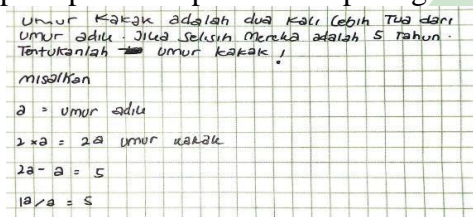 umur kakak adalah dua kali lebih Tua dari
umur adik. Jika selisih mereka adalah 5 Tahun.
Tentukanlah umur kakak!
misalkan
a = umur adik
2 x a = 2a umur kakak
2a - a = 5
1a/a = 5